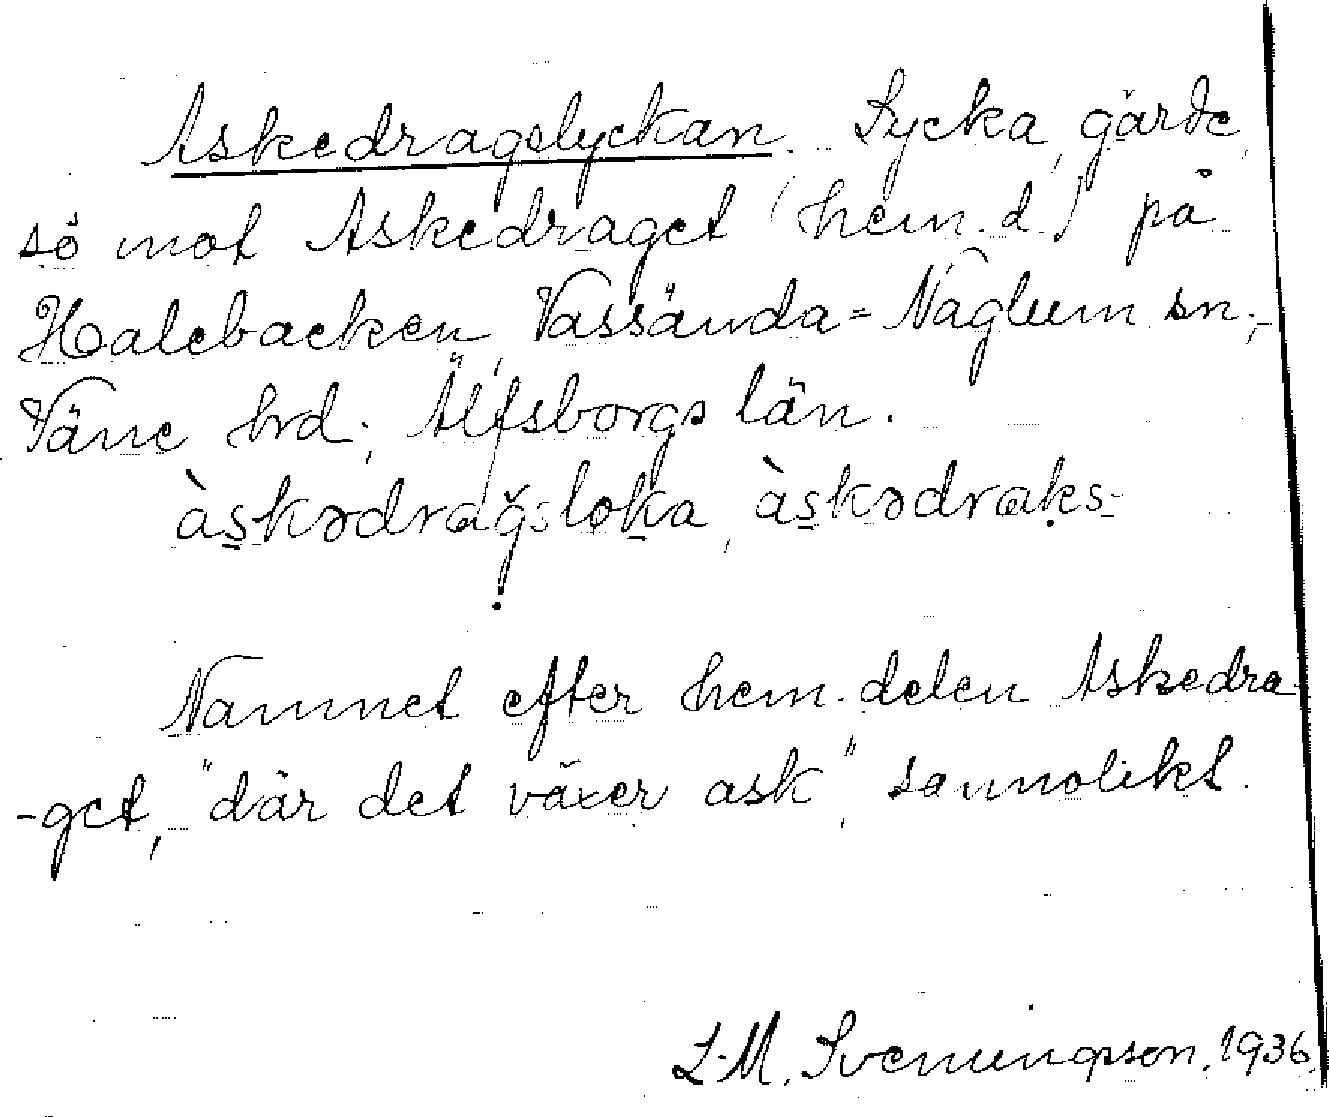 Askedragslyckan. Lycka, gärde,
sö mot Askedraget (hem.d.) på
Halebacken, Vassända=Naglum sn;
Väne hrd; Älfsborgs län.
àskədragsloka, àskədraks-
Namnet efter hem.delen Askedra-
-get, "där det växer ask", sannolikt.
L.M. Svenungsson. 1936.